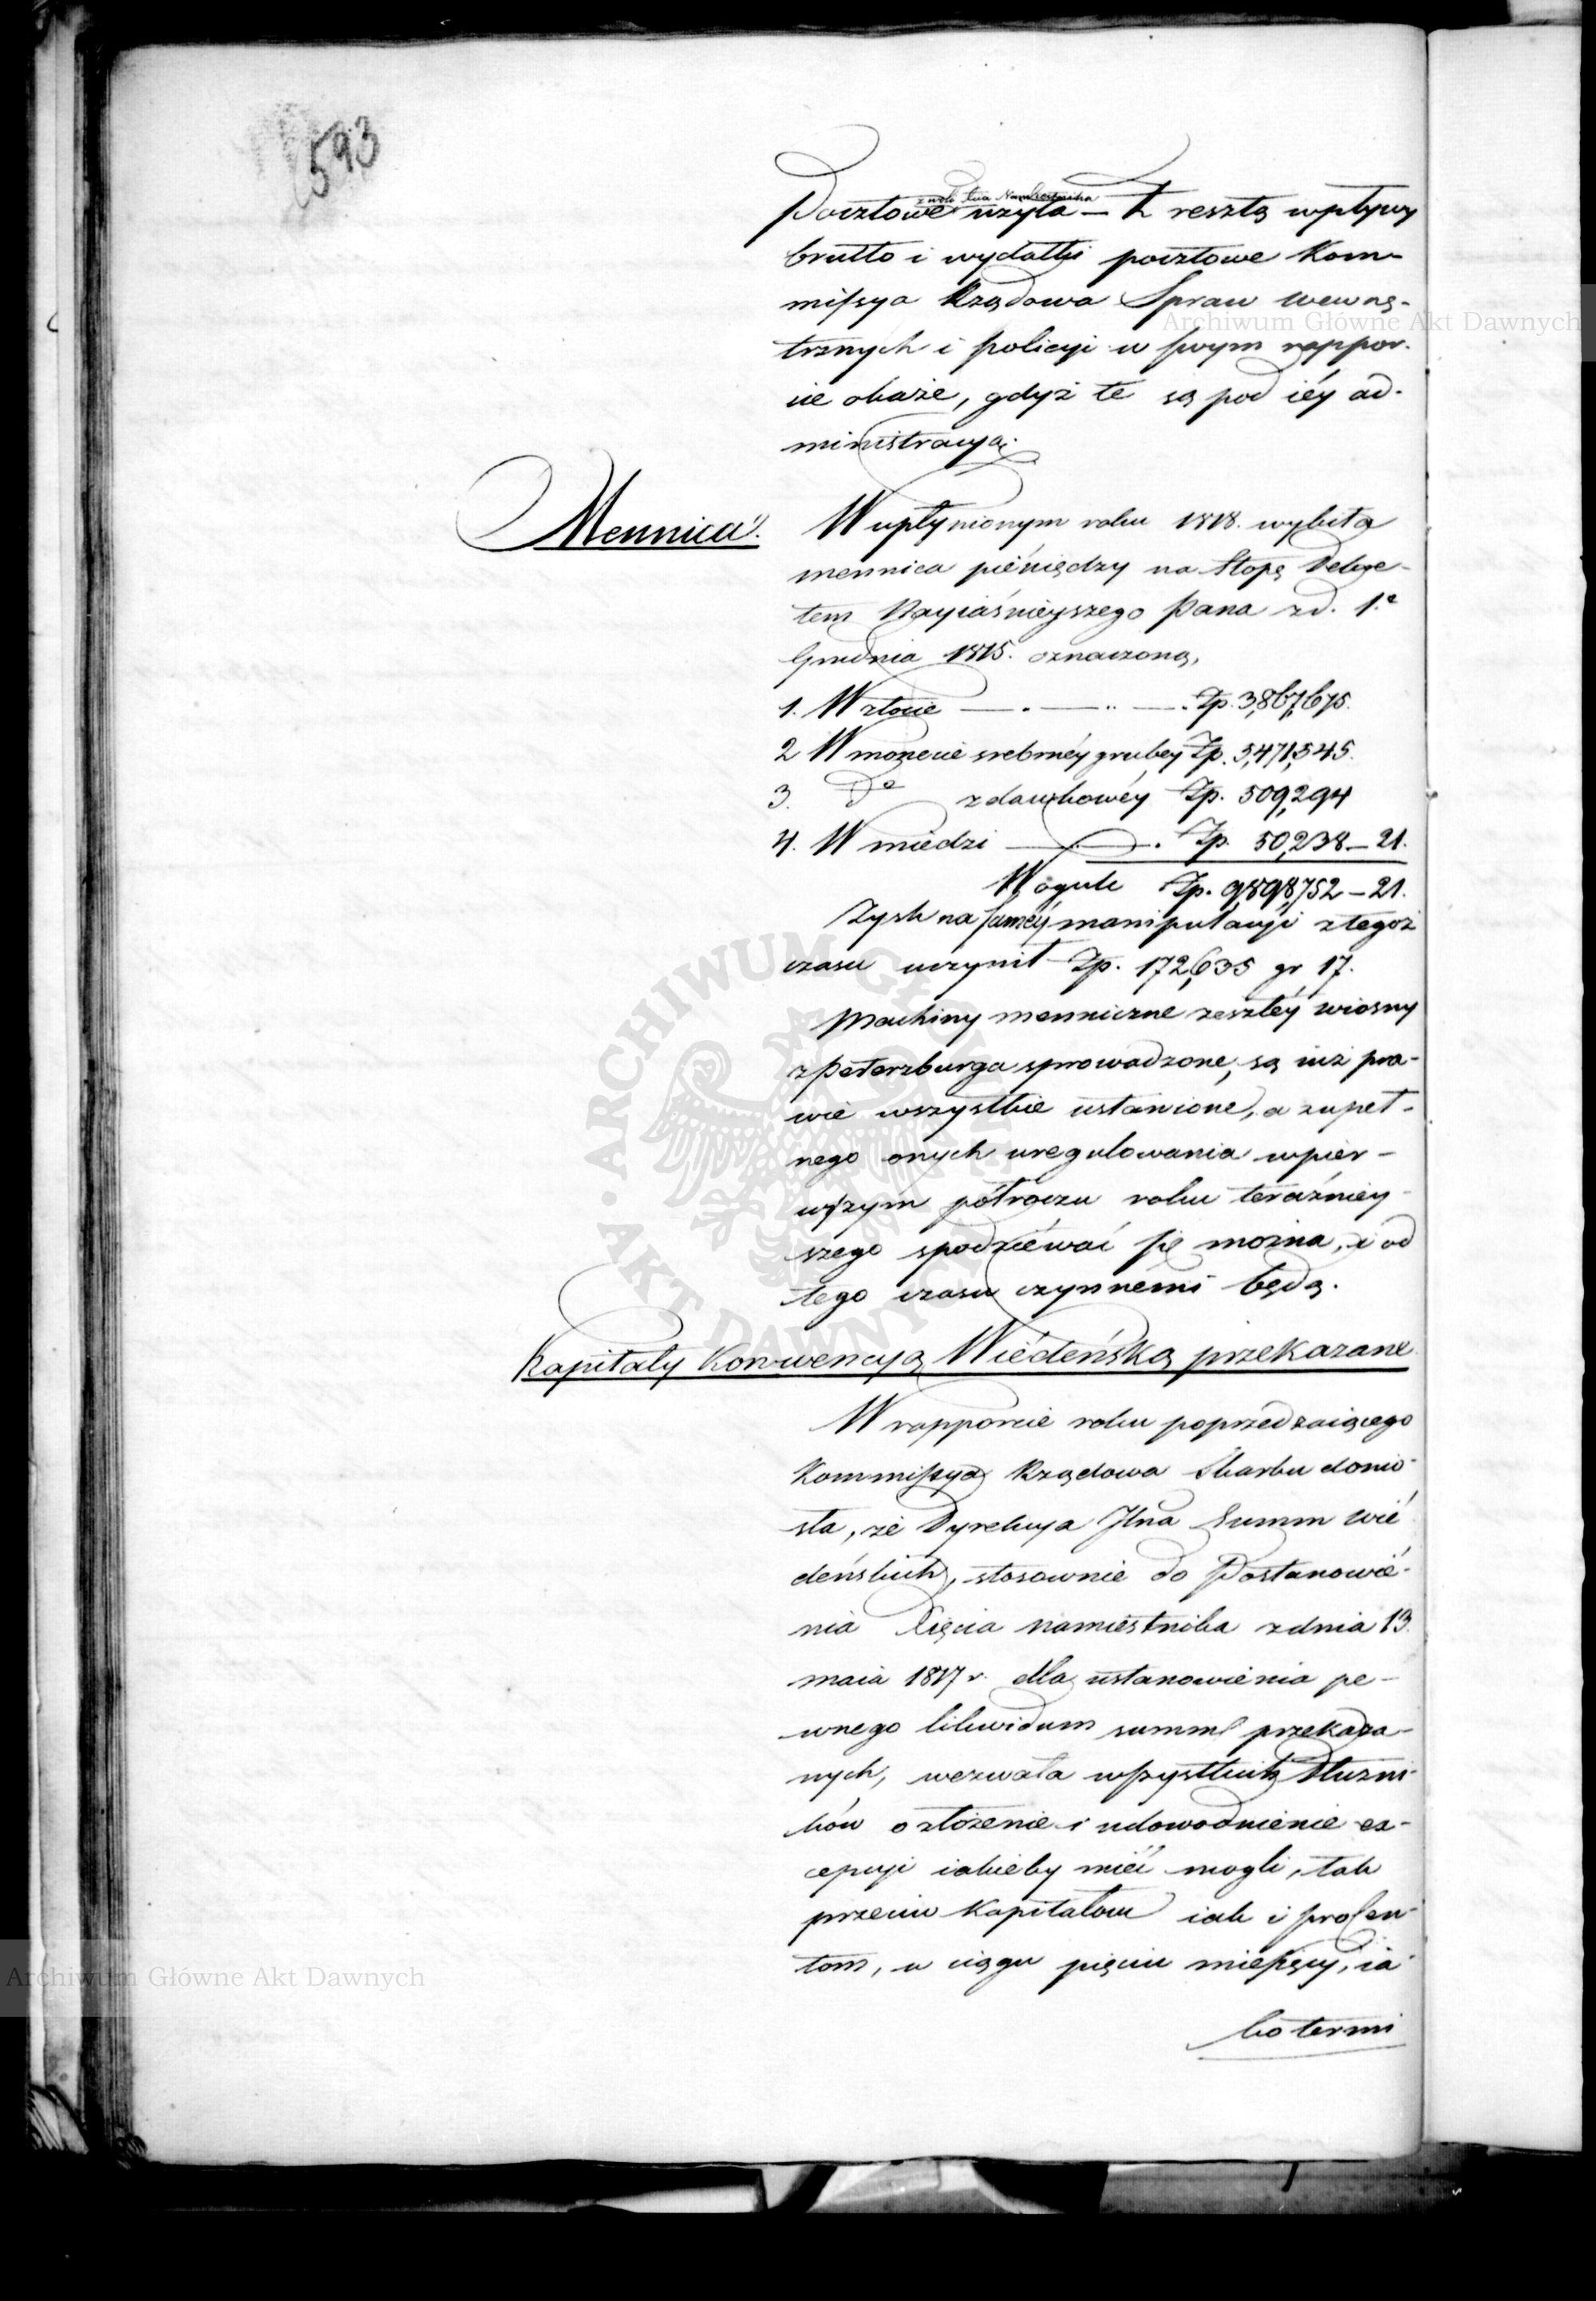 593
z woli Xcia Namiestnika
Pocztowe użyła — Z resztą wpływy
brutto i wydatki pocztowe Kom-
missya Rządowa Spraw wewnę-
trznych i Policyi w swym rappor-
cie okaże, gdyż te są pod iéy ad-
ministracyą.
Mennica.
W upłynionym roku 1818. wybiła
mennica piéniędzy na stopę Dekre-
tem Nayiaśnieyszego Pana z d. 1.o
Grudnia 1815. oznaczoną,
1. W złocie — . — .. — . Zp. 3,867,675.
2 W monecie srebrnéy grubéy Zp. 5,471,545.
3. do zdawkowéy Zp. 509,294
4. W miedzi — . Zp. 50,238 — 21.
W ogule Zp. 9,898,752 — 21.
Zysk na saméy manipulacyi z tegoż
czasu uczynił Zp. 172,635 gr 17.
Machiny menniczne zeszłéy wiosny
z Peterzburga sprowadzone, są iuż pra-
wie wszystkie ustawione, a zupeł-
nego onych uregulowania w pier-
wszym półroczu roku teraźniey-
szego spodziéwać się można, i od
tego czasu czynnemi będą.
Kapitały Konwencyą Wiédeńską przekazane
W rapporcie roku poprzedzaiącego
Kommissya Rządowa Skarbu donio-
sła, że Dyrekcya Jlna Summ Wié
deńskich, stosownie do Postanowié-
nia Xięcia Namiestnika z dnia 13.
maia 1817 r. dla ustanowienia pe-
wnego likwidum summ przekaza-
nych, wezwała wszystkich Dłużni-
ków o złożenie i udowodnienie ex-
cepcyi iakieby miéć mogli, tak
przeciw Kapitałom iak i procen-
tom, w ciągu pięciu miesięcy, ia
ko termi
Archiwum Główne Akt Dawnych
Archiwum Główne Akt Dawnych
ARCHIWUM GŁÓWNE AKT DAWNYCH